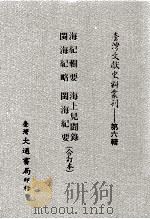 臺灣文獻史料叢刊——第六輯
海紀輯要 海上見聞錄
閩海紀略 閩海紀要
(合訂本)
臺灣大通書局印行